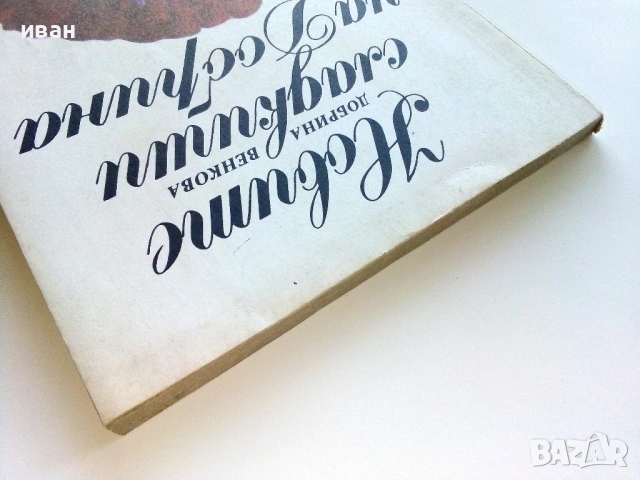 ДОБРИНА ВЕНКОВА
Новите
сладкиши
на Добрина
иван
BAZAR